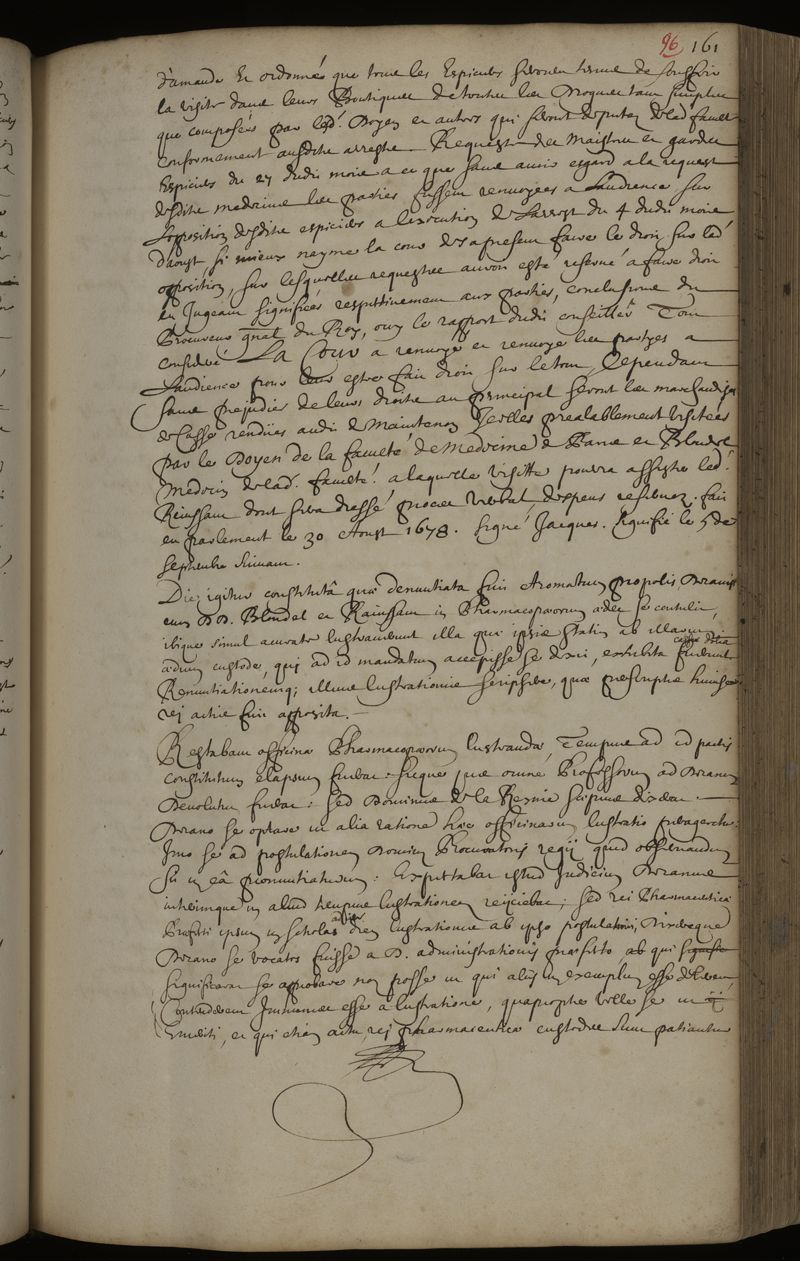 96 161
d'amande Et ordonné que tous les Espiciers seront tenus de souffrir
la visite dans leurs Boutiques de toutes les Drogues tant simples
que composées par led. Doyen et autres qui seront deputez de lad. faculté
conformement ausdits arrests. Requeste des Maistres et gardes
Espiciers du 27 dudit mois a ce que sans avoir esgard a la requeste
desdits medecins les parties fussent renvoyées a l'audience sur
l'opposition desdits espiciers a l'execution de l'arrest du 4 dudit mois
d'aoust si mieux n'ayme la cour des a present faire le droit sur lad.
opposition, sur lesquelles requestes auroit esté reservé a faire droit
en Jugeant signifiées respectivement aux parties, conclusions du
Procureur gnal du Roy, ouy le rapport dudit conseiller Tout
consideré La Cour a renvoyé et renvoye les partyes a
l'audience pour leur estre fait droit sur le tout, Cependant
sans prejudice de leurs droits au principal seront les marchandises
de Casse rendües audit de Maintenon Icelles prealablement visitées
par le Doyen de la faculté de Medecine de Paris et Blondel
Medecin de lad. faculté. a laquelle visitte pourra assister led.
Rainssant dont sera dressé procez verbal, despens reservez. fait
en parlement le 30 Aoust 1678. signé Jacques. signifié le 5 de
septembre suivant.
Die igitur constitutâ quae denuntiata fuit Aromatum propolis, Decanus
cum DD. Blondel et Rainssant in Pharmacopoeorum aedes se contulit,
ibique simul accurate lustraverunt illa quae ipsis statim ab illarum
aedium custode, qui ad id mandatum accepisse se dixit, exhibita fuerunt cassiae dolia
Renuntiationemque illius lustrationis scripsere, quae praescriptis huiusce
rei actis fuit apposita.
Restabant officinae Pharmacopoeorum lustrandae, Tempus ad id pactis
constitutum elapsum fuerat: sicque jus omne Professorum ad Decanum
Devolutum fuerat: sed Dominus de la Reynie scripsit
Decano se optare ut alia ratione haec officinarum lustratio perageretur:
Imo se ad postulationem Domini Procuratoris regii quid observandum
sit in eâ pronuntiaturum: Expectabat istud judicium Decanus
interimque in aliud tempus lustrationem rejiciebat; sed rei Pharmaceuticae
Praefecti ipsum in scholas adiere diem lustrationis ab ipso postulaturi, Dixitque
Decano se vocatos fuisse a D. administrationis praefecto, ab qui
significarat se approbare non posse ut qui aliis in exemplum esse deberent
Contenderent Immunes esse a lustratione, quapropter velle se ut
Emeriti, et qui etiam actu rei pharmaceuticae custodes sunt patiantur